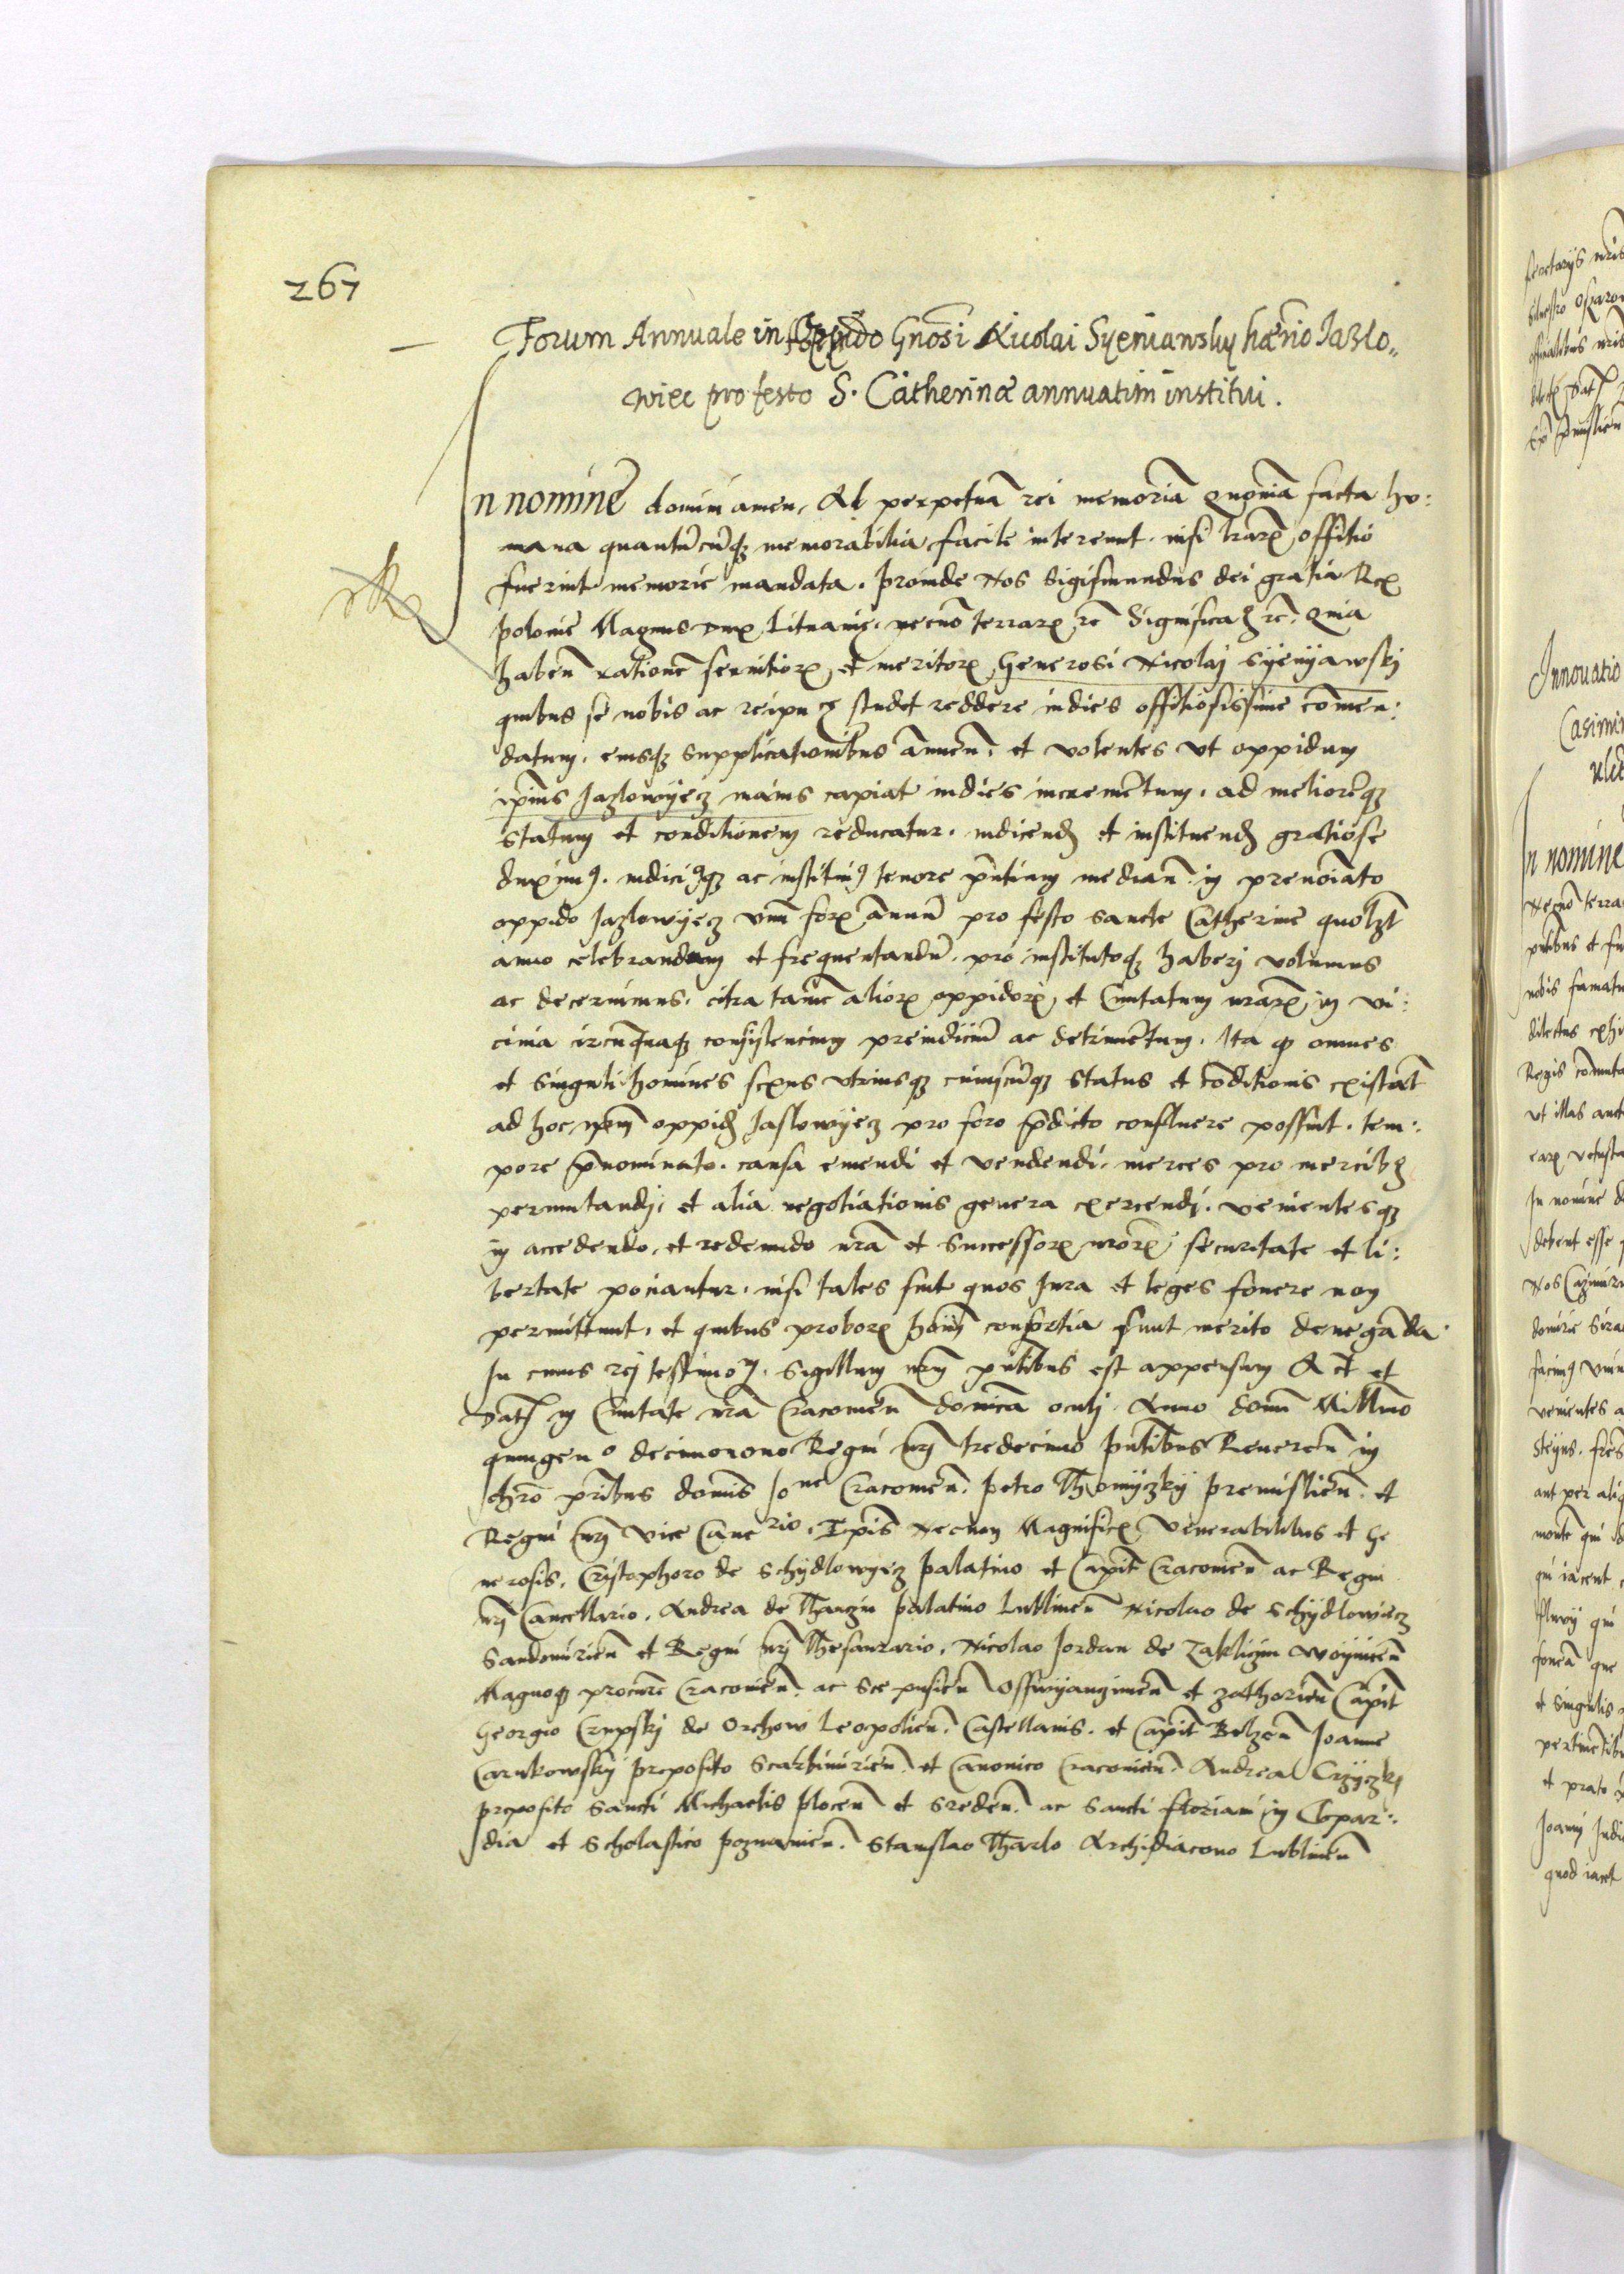 267
Forum Annuale in Oppido Gnosi Nicolai Syeniawsky hærio Jazlo„
wiec pro festo S. Catherinæ annuatim institui.
In nomine domini amen, Ad perpetuã rei memoriã Quoniã facta hu:
mana quantũcũqz memorabilia facile intereunt. nisi lrarꝝ offitio
fuerint memorie mandata. Proinde Nos Sigismundus dei gratia Rex
Polonie Magnus dux Lituanie, necnõ terrarꝝ rc̃ Significaꝫ rc̃. Quia
habeñ rationẽ seruitiorꝝ et meritorꝝ Generosi Nicolaj Syenyawskj
quibus se nobis ac reipuce studet reddere indies offitiosissime comen:
datum, eiusqz supplicationibus annueñ. et volentes vt oppidum
ipsius Jazlowyecz maius capiat indies incremẽtum, ad meliorẽqz
statum et conditionem reducatur. indicendꝫ et instituendꝫ gratiose
duximꝯ. indicimꝯqz ac instituimꝯ tenore pñtium mediañ. in prenoĩato
oppido Jazlowyecz vnũ forꝝ annuũ pro festo Sancte Catherine quolꝫt
anno celebrandum et frequentandũ. pro institutoqz haberj volumus
ac decernimus. citra tamẽ aliorꝝ oppidorꝝ et Ciuitatum nrarꝝ in vi:
cinia circũquaqz consistencium preiudiciũ ac detrimẽtum. Ita qꝫ omnes
et singuli homines sexus vtriusqz cuiuscũqz status et cõditionis existãt
ad hoc ipsum oppidꝫ Jaslowyecz pro foro p̃dicto confluere possint. tem:
pore p̃nominato. causa emendi et vendendi. merces pro mercibꝫ
permutandj. et alia negotiationis genera exercendj. venientesqz
in accedendo, et redeundo nrã et Successorꝝ nrorꝝ securitate et li:
bertate pociantur. nisi tales sint quos Jura et leges fouere non
permittunt, et quibus proborꝝ hoĩm consortia sunt merito denegãda.
In cuius rej testimoꝫ. Sigillum nrm pñtibus est appensum Act̃ et
Datꝫ in Ciuitate nrã Cracovieñ domĩca oculj. Anno domĩ Millmo
quingeno decimonono Regni nrj tredecimo pñtibus Revereñ in
chro pribus domĩs Jone Cracovieñ. Petro Thomyczky Premislieñ. et
Regni nrj vice Cancrio. Epis̃ Necnon Magnificꝫ Venerabilibus et Ge
nerosis. Cristophoro de Schydlowyecz Palatino et Capit̃ Cracovieñ ac Regni
nrj Cancellario. Andrea de Thanczin Palatino Lublineñ Nicolao de Schydlowiecz
Sandomirieñ et Regni nrj Thesaurario. Nicolao Jordan de Zakliczin Woynicieñ
Magnoqz procure Cracovieñ. ac Scepusieñ Osswyanczimeñ et Zathorieñ Capit̃
Georgio Crupskj de Orchow Leopolieñ. Castellanis. et Capit̃ Belzeñ Joanne
Carnkowsky Preposito Scarbimirieñ. et Canonico Cracovieñ. Andrea Crzyczkj
Preposito Sancti Michaelis Ploceñ et Sredeñ. ac Sancti Floriani in Clepar:
dia et Scholastico Poznanieñ. Stanislao Tharlo Archidiacono Lublineñ
Innouatio
Casimir
In nomine